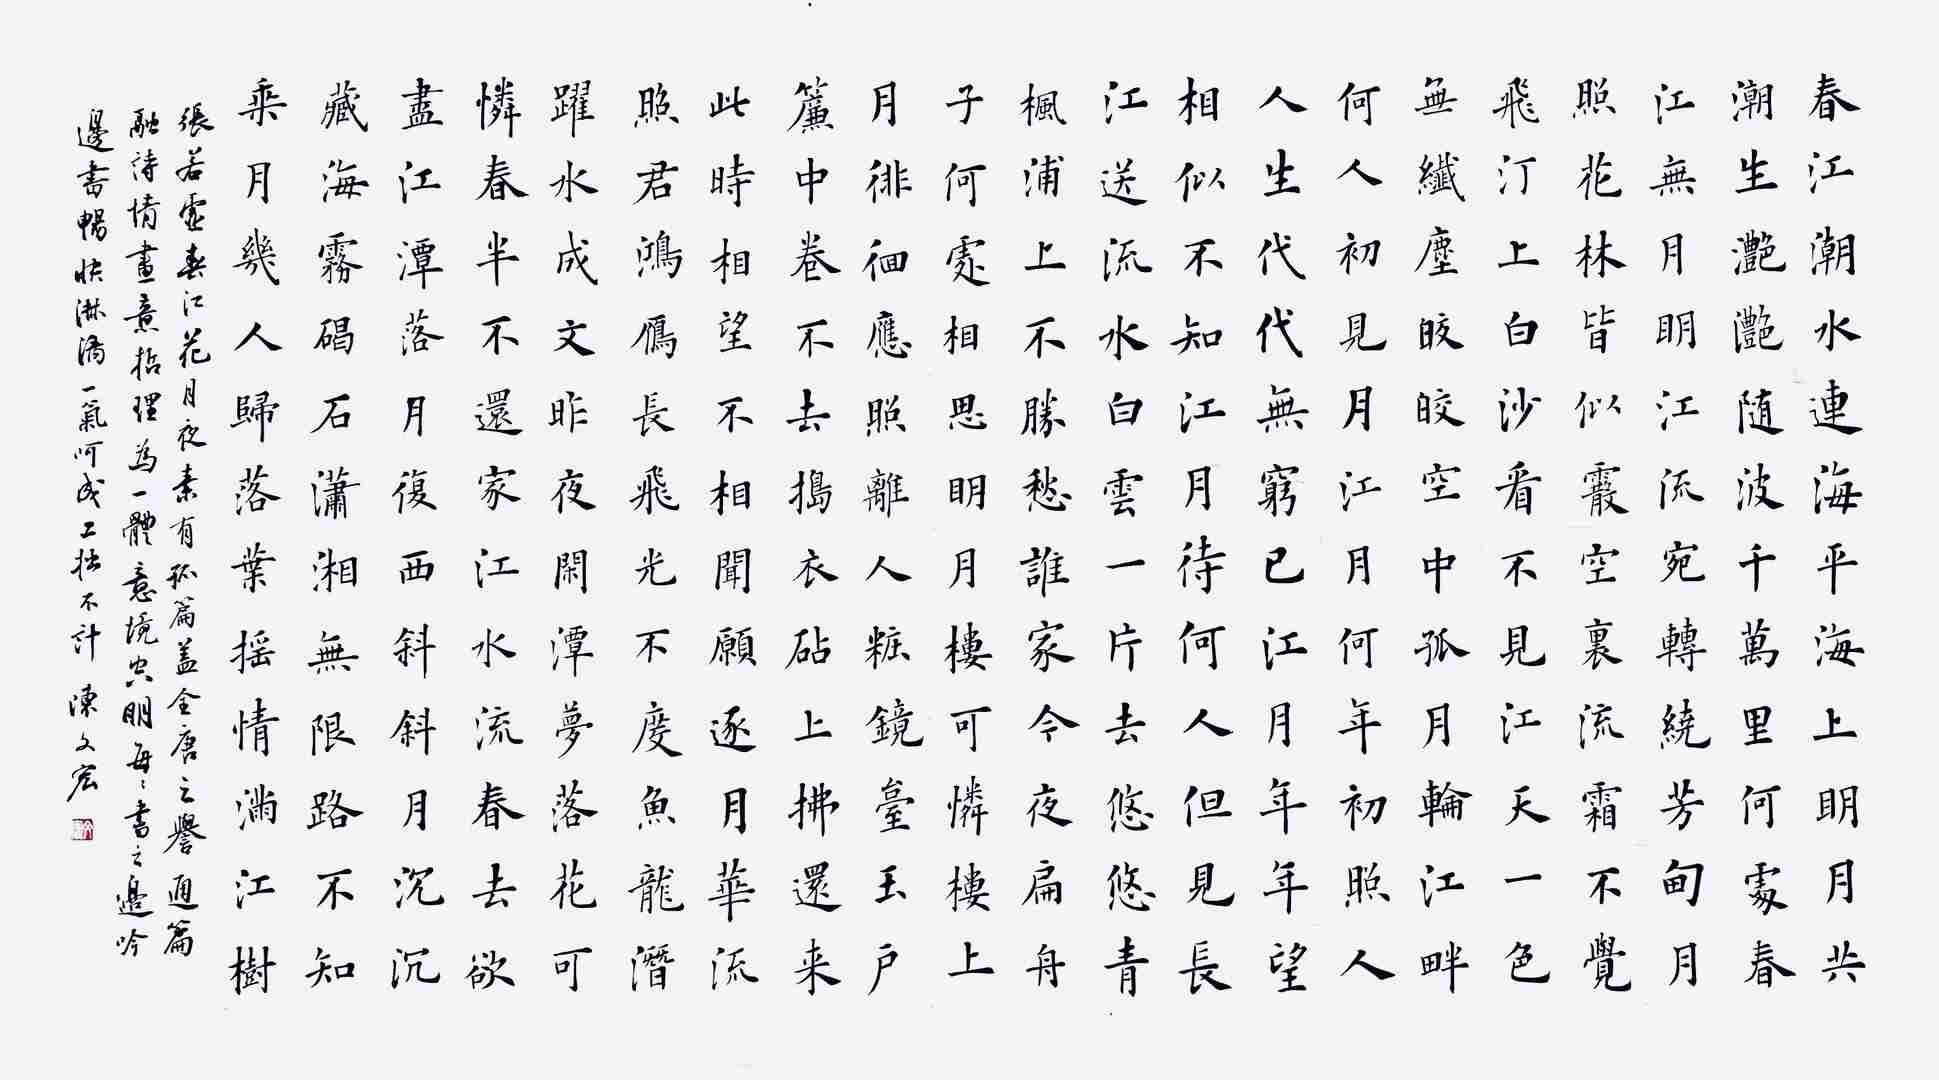 春江潮水連海平海上明月共
潮生灧灧随波千萬里何處春
江無月明江流宛轉繞芳甸月
照花林皆似霰空裏流霜不覺
飛汀上白沙看不見江天一色
無纖塵皎皎空中孤月輪江畔
何人初見月江月何年初照人
人生代代無窮已江月年年望
相似不知江月待何人但見長
江送流水白雲一片去悠悠青
楓浦上不勝愁誰家今夜扁舟
子何處相思明月樓可憐樓上
月徘徊應照離人粧鏡臺玉戶
簾中卷不去搗衣砧上拂還来
此時相望不相聞願逐月華流
照君鴻鴈長飛光不度魚龍潛
躍水成文昨夜閑潭夢落花可
憐春半不還家江水流春去欲
盡江潭落月復西斜斜月沉沉
藏海霧碣石瀟湘無限路不知
乘月幾人歸落葉摇情滿江樹
張若虛春江花月夜素有孤篇盖全唐之譽通篇
融詩情畫意哲理為一體意境空明每々書之邊吟
邊書暢快淋漓一氣呵成工拙不計 陳文宏